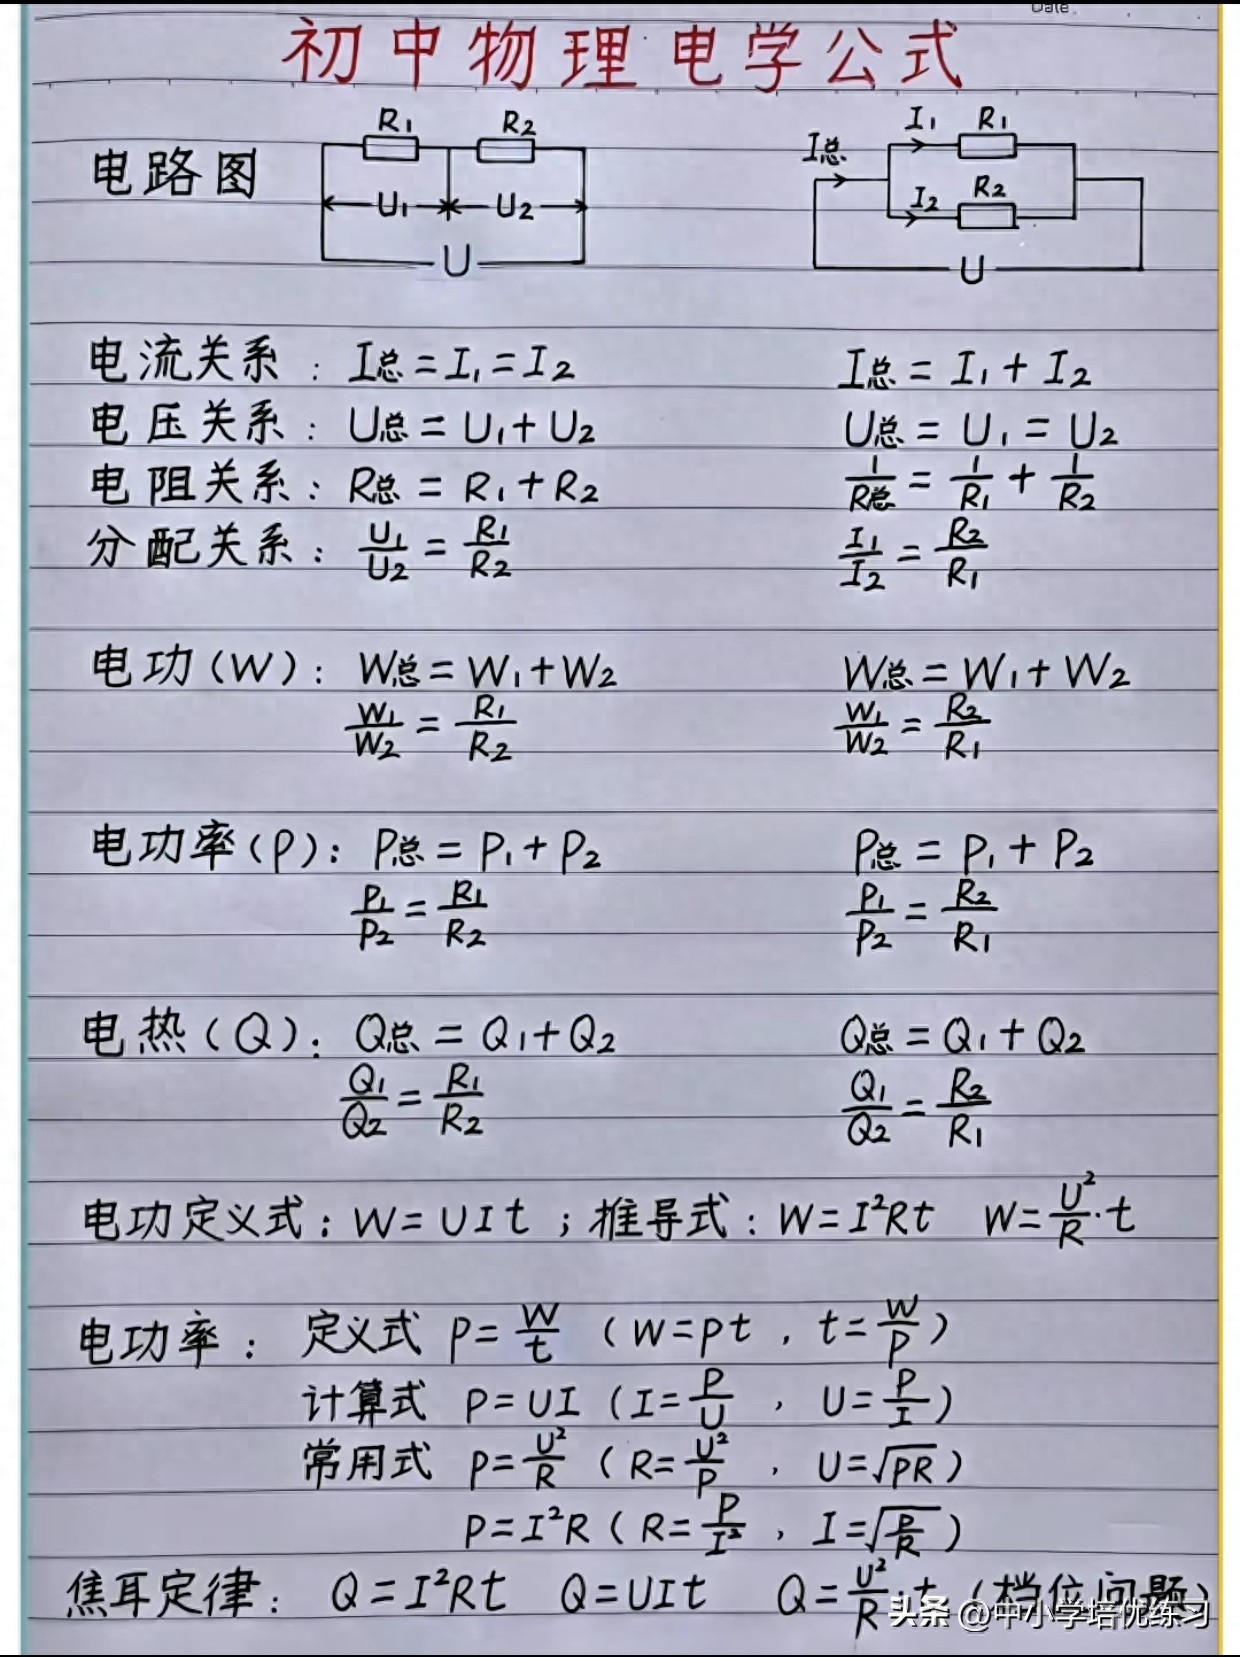 Date
初中物理电学公式
电路图 R₁ R₂ U₁ U₂ U
I总 I₁ R₁ I₂ R₂ U
电流关系：I总=I₁=I₂ I总=I₁+I₂
电压关系：U总=U₁+U₂ U总=U₁=U₂
电阻关系：R总=R₁+R₂ 1/R总=1/R₁+1/R₂
分配关系：U₁/U₂=R₁/R₂ I₁/I₂=R₂/R₁
电功(W)：W总=W₁+W₂ W总=W₁+W₂
W₁/W₂=R₁/R₂ W₁/W₂=R₂/R₁
电功率(P)：P总=P₁+P₂ P总=P₁+P₂
P₁/P₂=R₁/R₂ P₁/P₂=R₂/R₁
电热(Q)：Q总=Q₁+Q₂ Q总=Q₁+Q₂
Q₁/Q₂=R₁/R₂ Q₁/Q₂=R₂/R₁
电功定义式：W=UIt；推导式：W=I²Rt W=U²/R·t
电功率：定义式 P=W/t (W=Pt，t=W/P)
计算式 P=UI (I=P/U，U=P/I)
常用式 P=U²/R (R=U²/P，U=√PR)
P=I²R (R=P/I²，I=√P/R)
焦耳定律：Q=I²Rt Q=UIt Q=U²/R·t (档位问题)
头条 @中小学培优练习